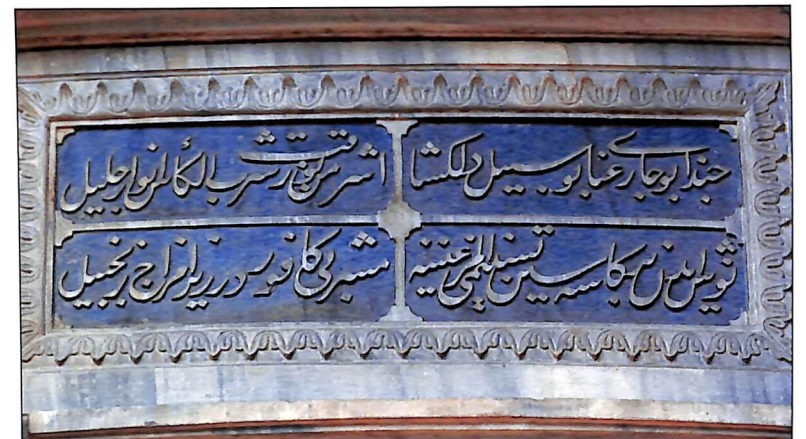 حبذا بو جای رعنا بو سبیل دلکشا
اشرقت من شرب الكأس انوار جلیل
نوش ایدن بر کاسه سین تسنیمی المز عیننه
مشربی کافور در زیرا مزاج زنجبیل